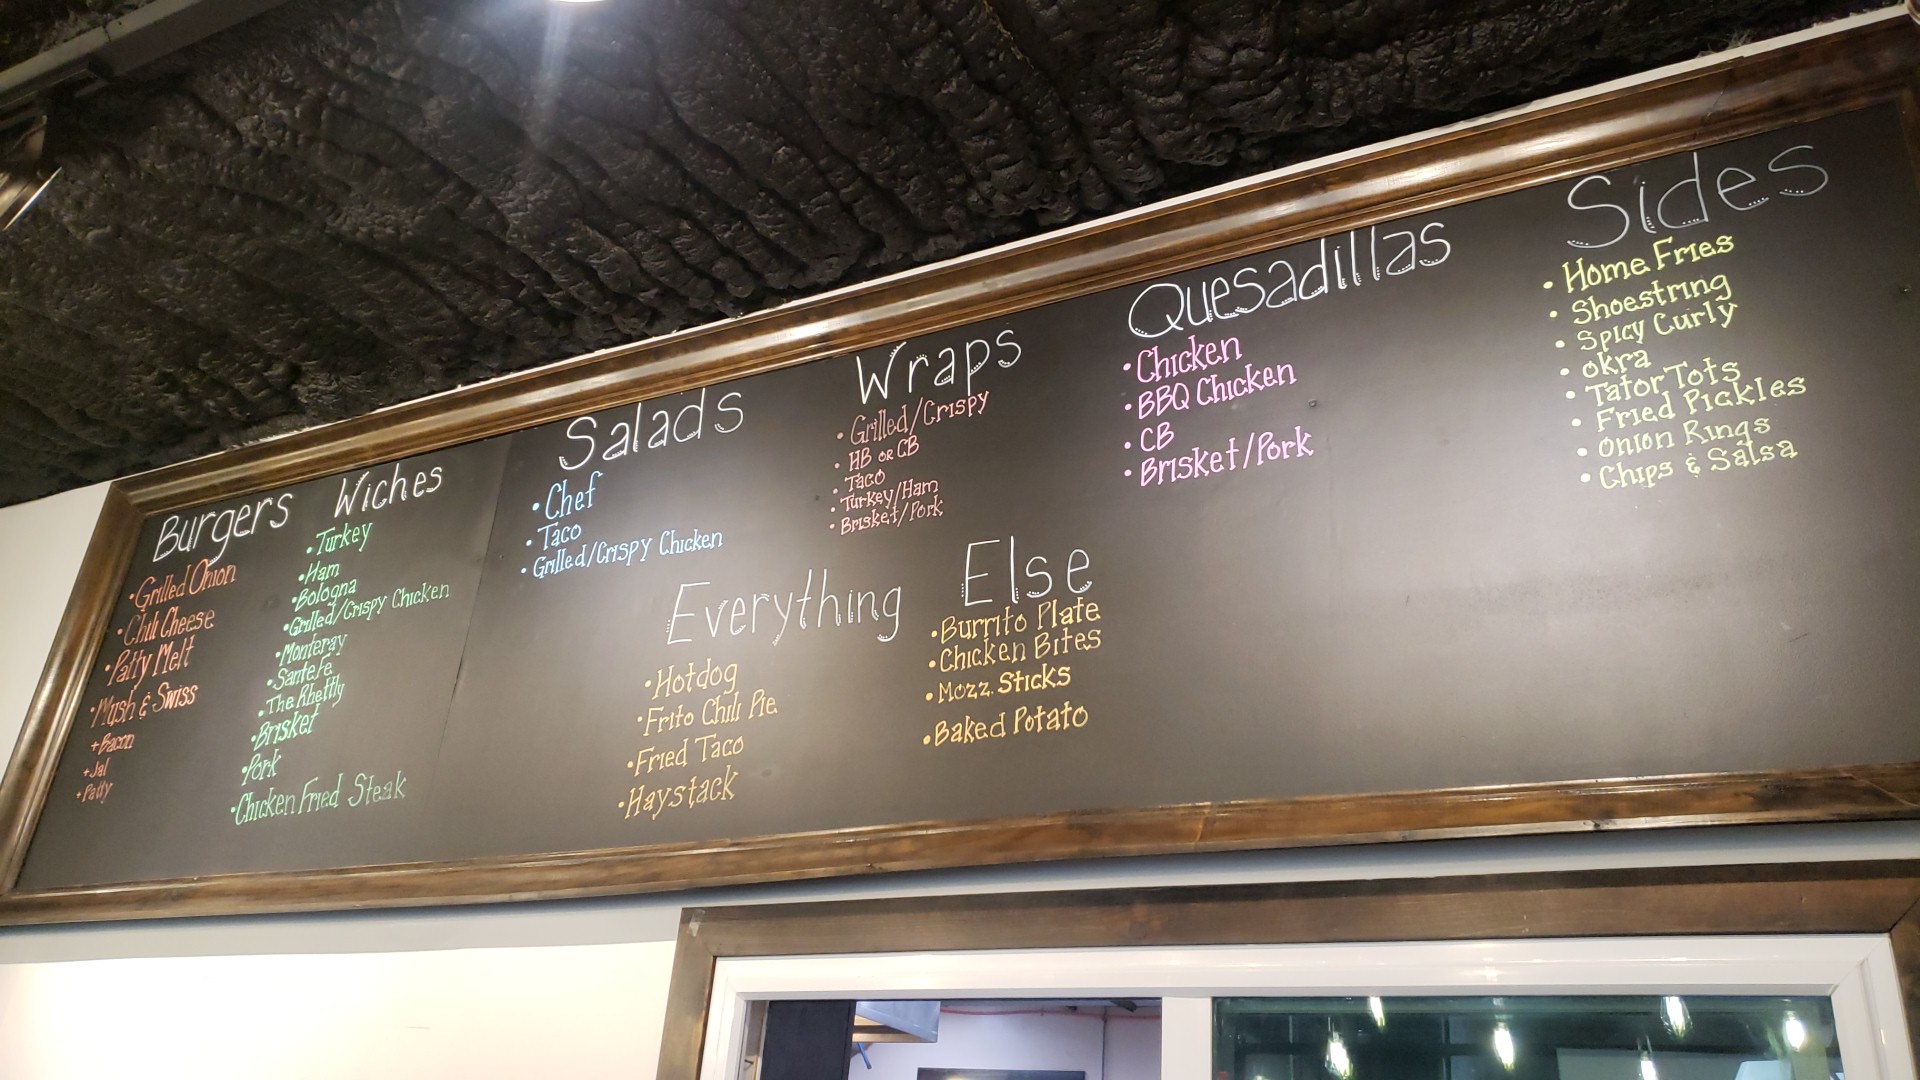 Burgers
• Grilled Onion
• Chili Cheese
• Patty Melt
• Mush & Swiss
+ Bacon
+ Jal
+ Patty
Wiches
• Turkey
• Ham
• Bologna
• Grilled/Crispy Chicken
• Monteray
• Sante Fe
• The Rhettly
• Brisket
• Pork
• Chicken Fried Steak
Salads
• Chef
• Taco
• Grilled/Crispy Chicken
Wraps
• Grilled/Crispy
• HB OR CB
• Taco
• Turkey/Ham
• Brisket/Pork
Everything Else
• Hotdog
• Frito Chili Pie
• Fried Taco
• Haystack
• Burrito Plate
• Chicken Bites
• Mozz. Sticks
• Baked Potato
Quesadillas
• Chicken
• BBQ Chicken
• CB
• Brisket/Pork
Sides
• Home Fries
• Shoestring
• Spicy Curly
• okra
• Tator Tots
• Fried Pickles
• Onion Rings
• Chips & Salsa